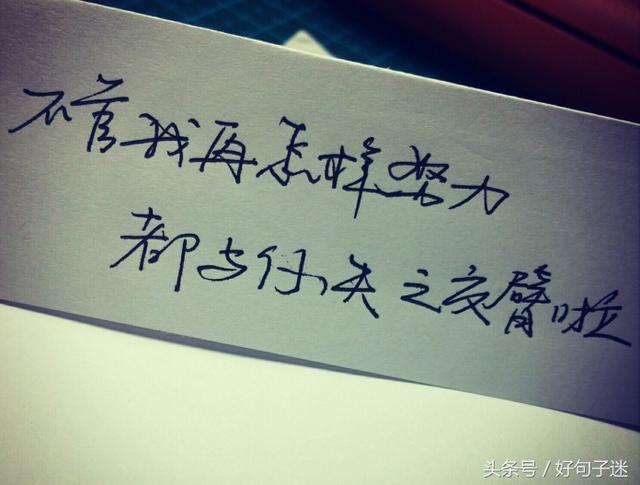 不管我再怎样努力
都与你失之交臂啦
头条号／好句子迷